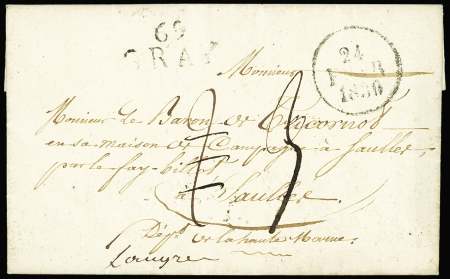 69
GRAY
24
1830
Monsieur
Monsieur Le Baron de
en sa maison de Campagne à Saulles,
par le fay-billot
à Saulles
Dépt de la haute Marne.